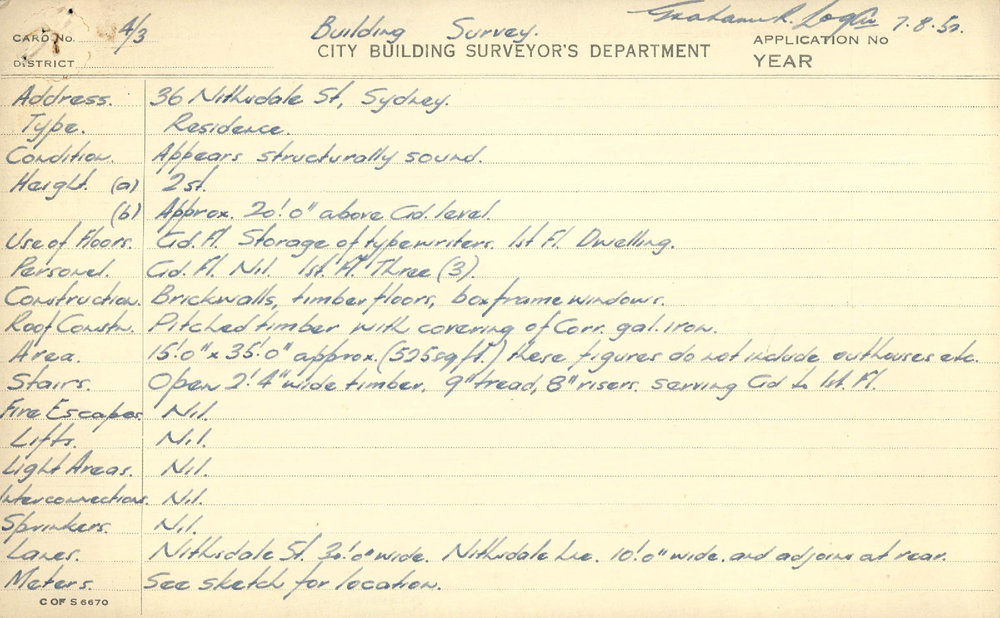 Building Survey. Graham R. Logan 7.8.5
CARD No. 4/3 CITY BUILDING SURVEYOR'S DEPARTMENT APPLICATION No
DISTRICT YEAR
Address. 36 Nithsdale St, Sydney.
Type. Residence.
Condition. Appears structurally sound.
Height. (a) 2 st.
(b) Approx. 20'.0" above Gd. level.
Use of Floors. Gd. Fl. Storage of typewriters. 1st Fl. Dwelling.
Personel. Gd. Fl. Nil. 1st. Fl. Three (3).
Construction. Brickwalls, timber floors, box frame windows.
Roof Constn. Pitched timber with covering of Corr. gal. iron.
Area. 15'.0" x 35'.0" approx. (525 sq ft.) these figures do not include outhouses etc.
Stairs. Open 2'.4" wide timber. 9" tread, 8" risers. serving Gd to 1st. Fl.
Fire Escapes. Nil.
Lifts. Nil.
Light Areas. Nil.
Interconnections. Nil.
Sprinkers. Nil.
Lanes. Nithsdale St. 30'.0" wide. Nithsdale Lne. 10'.0" wide. and adjoins at rear.
Meters. See sketch for location.
C OF S 6670